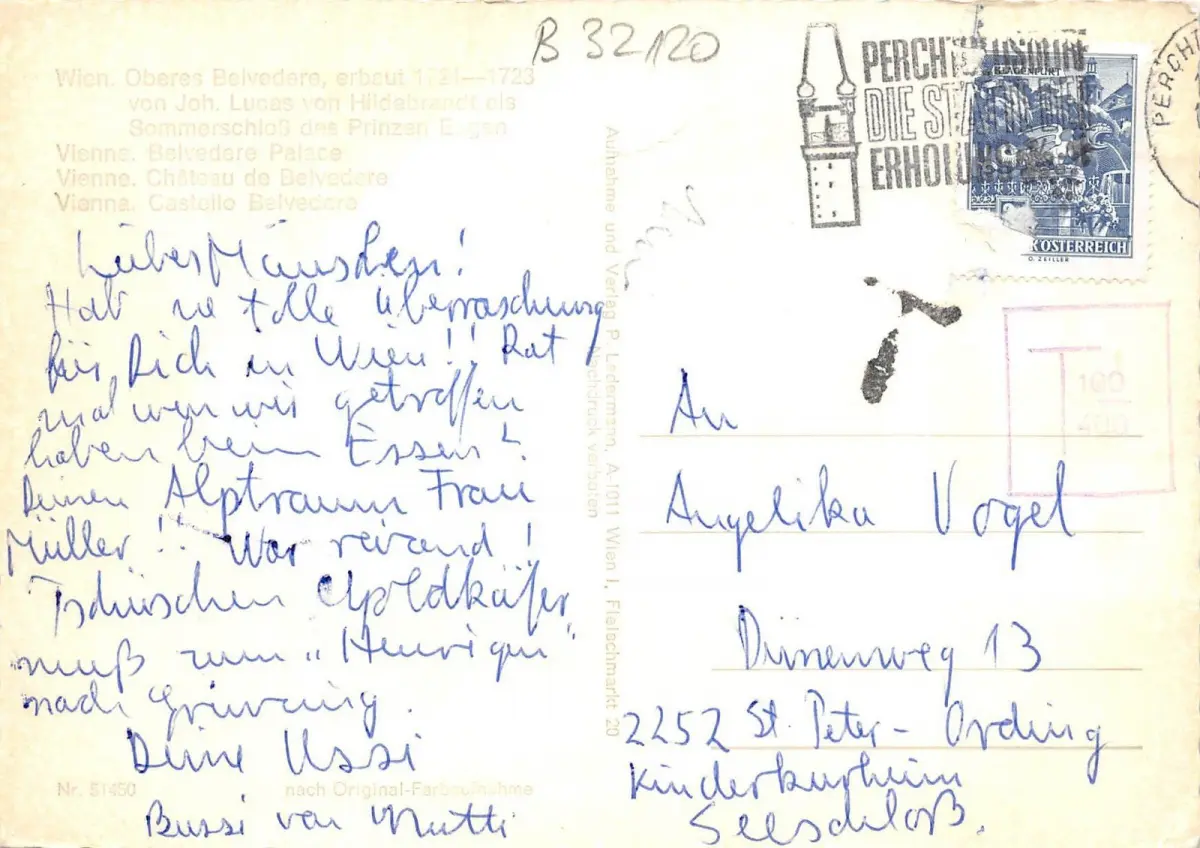 B 32120
Wien. Oberes Belvedere, erbaut 1721—1723
von Joh. Lucas von Hildebrandt als
Sommerschloß des Prinzen Eugen
Vienne. Belvedere Palace
Vienne. Château de Belvedere
Vienna. Castello Belvedere
Liebes Mäuschen!
Hab ne tolle Überraschung
für Dich in Wien!! Rat
mal wen wir getroffen
haben beim Essen!
Deinen Alptraum Frau
Müller!! War reizend!
Tschüschen Goldkäfer,
muß zum „Heurigen"
nach Grinzing.
Deine Ussi
Bussi von Mutti
Nr. 51450
nach Original-Farbaufnahme
Aufnahme und Verlag P. Ledermann, A-1011 Wien I, Fleischmarkt 20
Nachdruck verboten
PERCHTOLDSDORF
DIE STADT DER
ERHOLUNG
PERCHT
KLAGENFURT
K ÖSTERREICH
O. ZEILLER
T
100
400
An
Angelika Vogel
Dünenweg 13
2252 St. Peter-Ording
Kinderkurheim
Seeschloß.